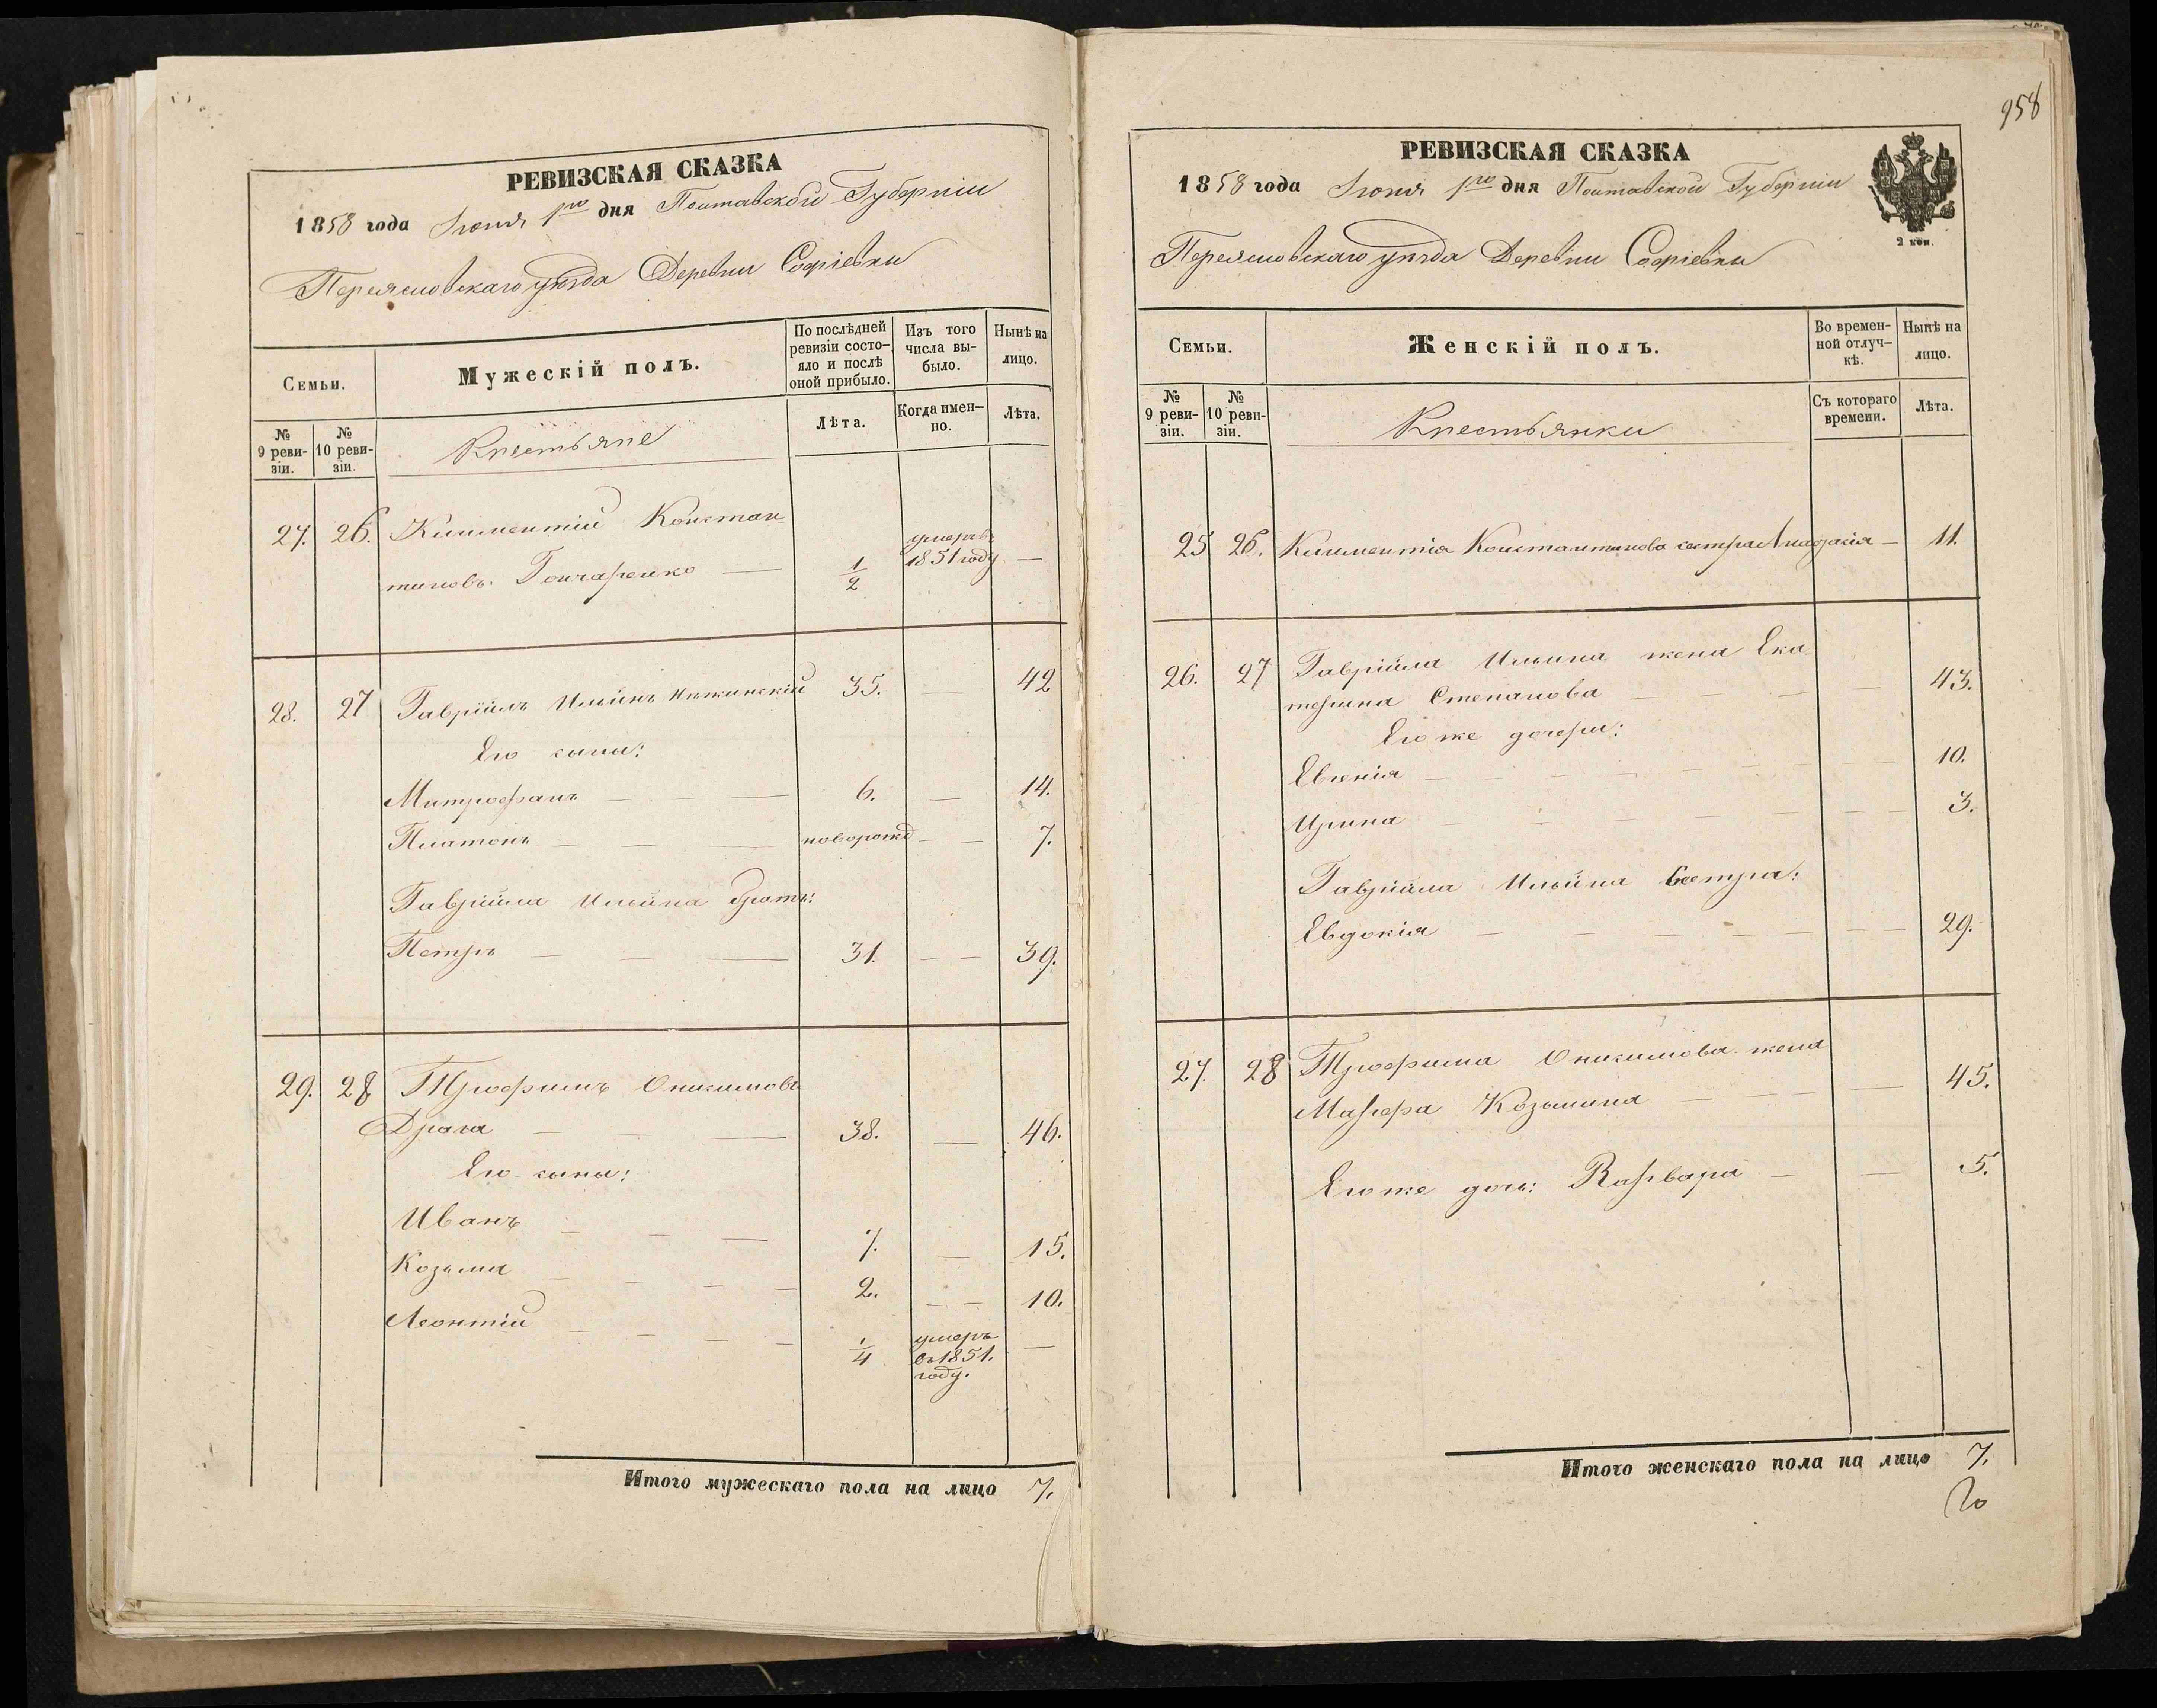 РЕВИЗСКАЯ СКАЗКА
1858 года Июня 1го дня Полтавской Губернiи
Переясловскаго уѣзда Деревни Софiевки
Семьи.
Мужескiй полъ.
По послѣдней ревизiи состо-яло и послѣ оной прибыло.
Изъ того числа вы-было.
Нынѣ на лицо.
№ 9 реви-зiи.
№ 10 реви-зiи.
Крестьяне
Лѣта.
Когда имен-но.
Лѣта.
27. 26. Климентiй Констан
тиновъ Гончаренко — 1/2 умеръ въ 1851 году —
28. 27 Гаврiилъ Ильинъ Нѣжинскiй 35. — 42
Его сыны:
Митрофанъ — — — 6. — 14.
Платонъ — — — новорожд — — 7.
Гаврiила Ильина братъ:
Петръ — — — 31. — — 39.
29. 28 Трофимъ Оникимовъ
Драга — — — 38. — 46.
Его сыны:
Иванъ — — — 7. — 15.
Козьма — — — 2. — — 10.
Леонтiй — — — — 1/4 умеръ въ 1851. году. —
Итого мужескаго пола на лицо 7.
958
РЕВИЗСКАЯ СКАЗКА
1858 года Июня 1го дня Полтавской Губернiи
2 коп.
Переясловскаго уѣзда Деревни Софiевки
Семьи.
Женскiй полъ.
Во времен-ной отлуч-кѣ.
Нынѣ на лицо.
№ 9 реви-зiи.
№ 10 реви-зiи.
Крестьянки
Съ котораго времени.
Лѣта.
25 26. Климентiя Константинова сестра — 11.
26. 27 Гаврiила Ильина жена Ека
терина Степанова — — — — 43.
Его же дочери:
Евгенiя — — — — — — — — 10.
Ирина — — — — — — — — 3.
Гаврiила Ильина Сестра:
Евдокiя — — — — — — — 29.
27. 28 Трофима Оникимова жена
Марфа Козьмина — — — — 45.
Его же дочь: Варвара — — 5.
Итого женскаго пола на лицо 7.